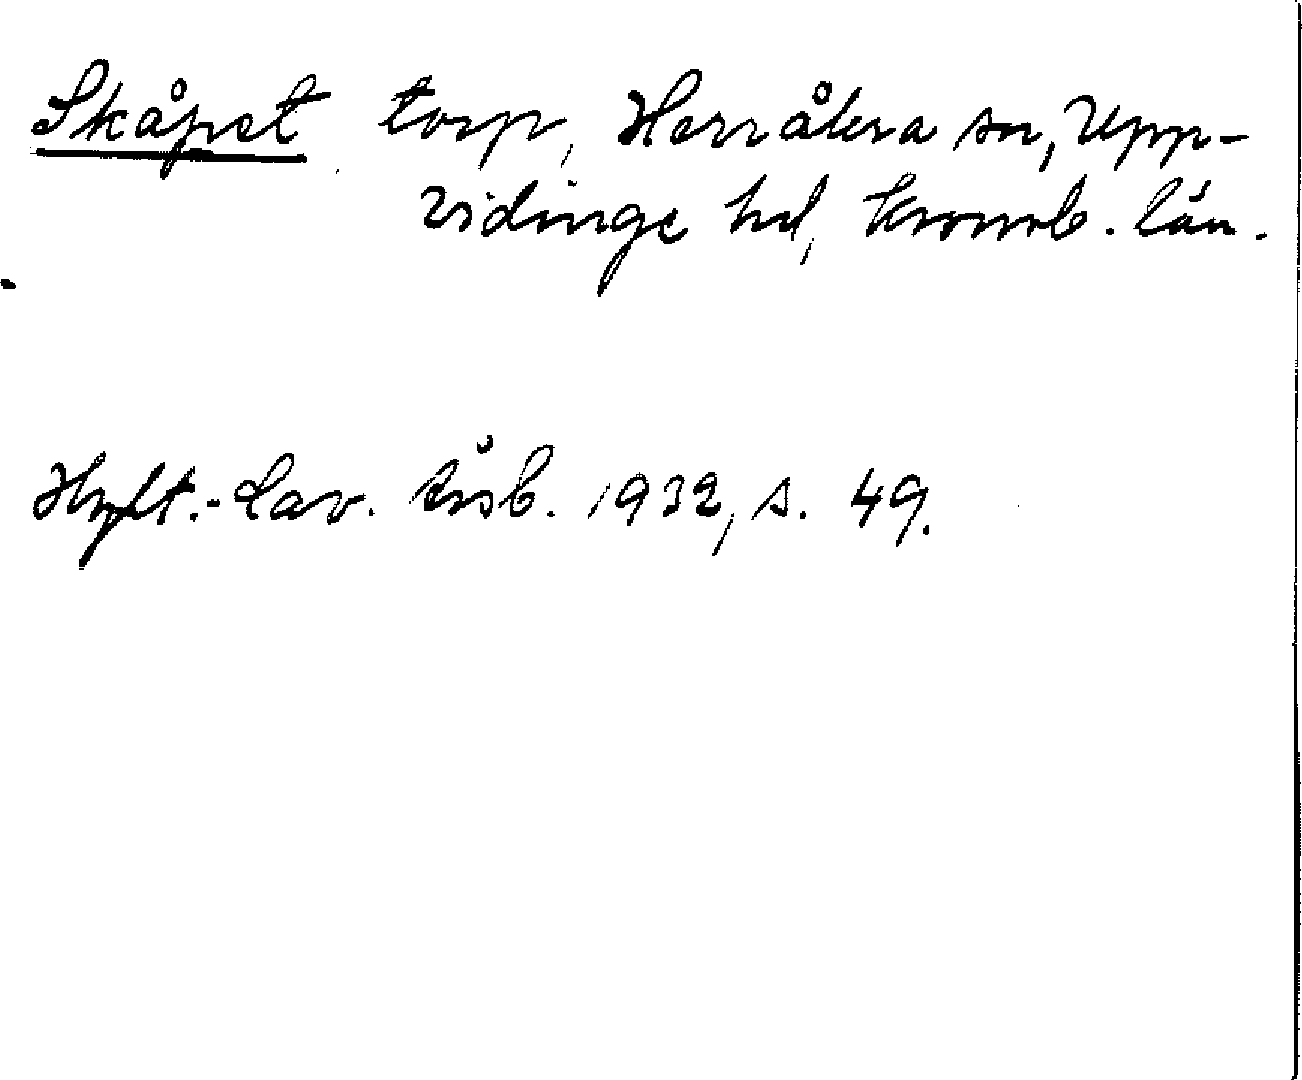 Skåpet torp, Herråkra sn, Upp-
vidinge hd, Kronob. län.
Hylt.-Cav. årsb. 1932, s. 49.